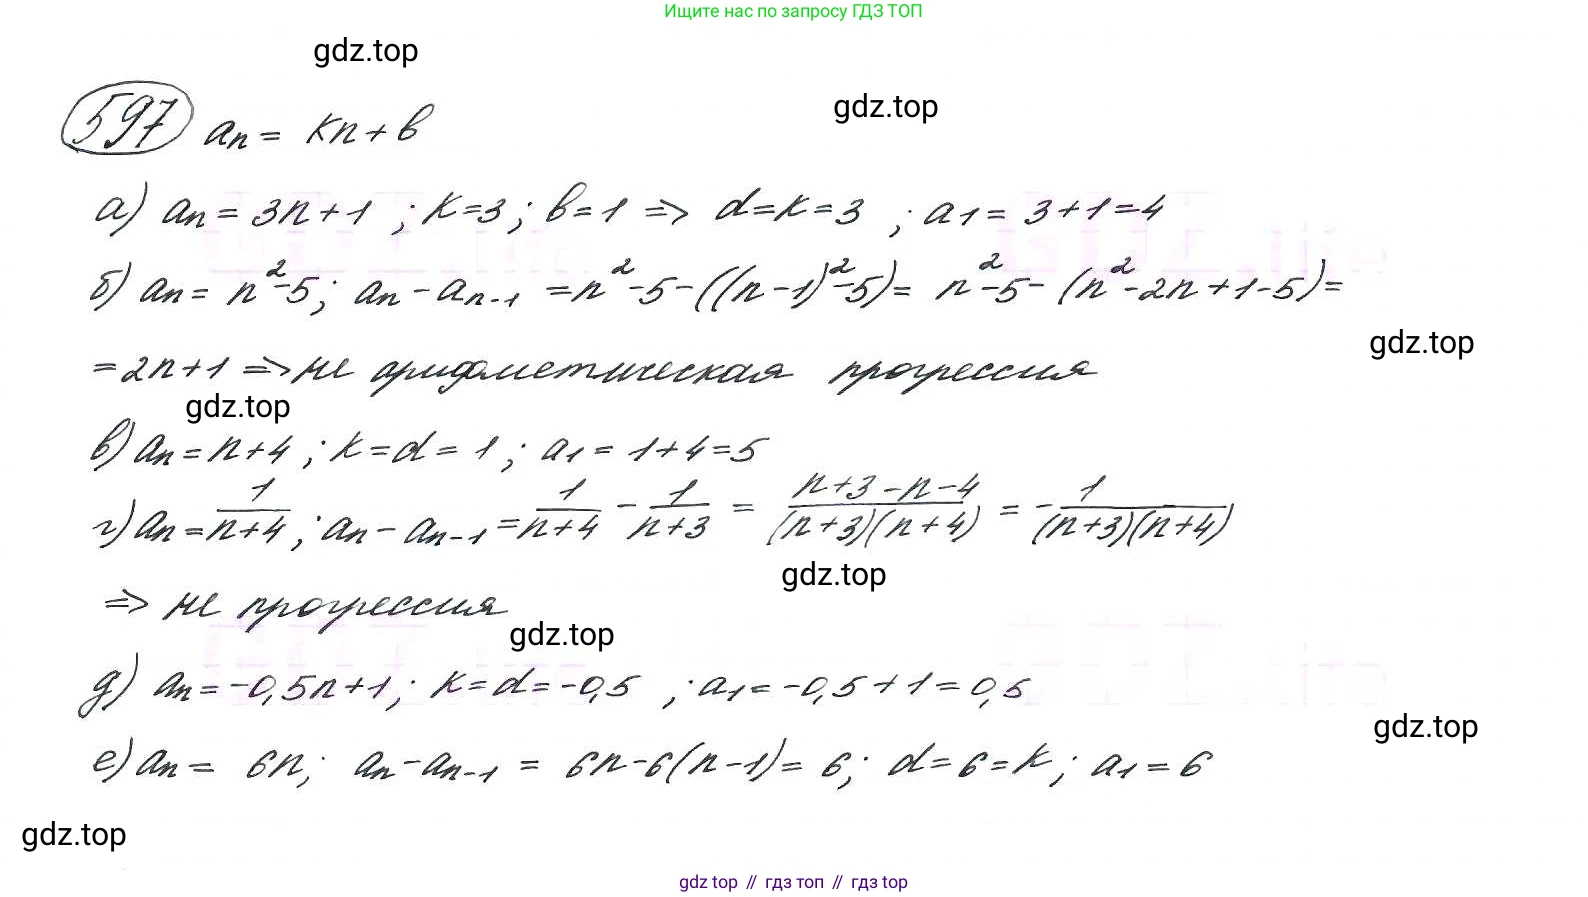 Ищите нас по запросу ГДЗ ТОП
gdz.top
gdz.top
597 aₙ = кn + в
а) aₙ = 3n + 1 ; к = 3 ; в = 1 => d = к = 3 ; a₁ = 3 + 1 = 4
б) aₙ = n² - 5; aₙ - aₙ₋₁ = n² - 5 - ((n - 1)² - 5) = n² - 5 - (n² - 2n + 1 - 5) =
gdz.top
= 2n + 1 => не арифметическая прогрессия
gdz.top
в) aₙ = n + 4 ; к = d = 1 ; a₁ = 1 + 4 = 5
г) aₙ = 1/(n + 4) ; aₙ - aₙ₋₁ = 1/(n + 4) - 1/(n + 3) = (n + 3 - n - 4)/((n + 3)(n + 4)) = - 1/((n + 3)(n + 4))
gdz.top
=> не прогрессия
gdz.top
д) aₙ = -0,5n + 1; к = d = -0,5 ; a₁ = -0,5 + 1 = 0,5
gdz.top
е) aₙ = 6n; aₙ - aₙ₋₁ = 6n - 6(n - 1) = 6; d = 6 = к; a₁ = 6
gdz.top
gdz top // гдз топ // гдз top